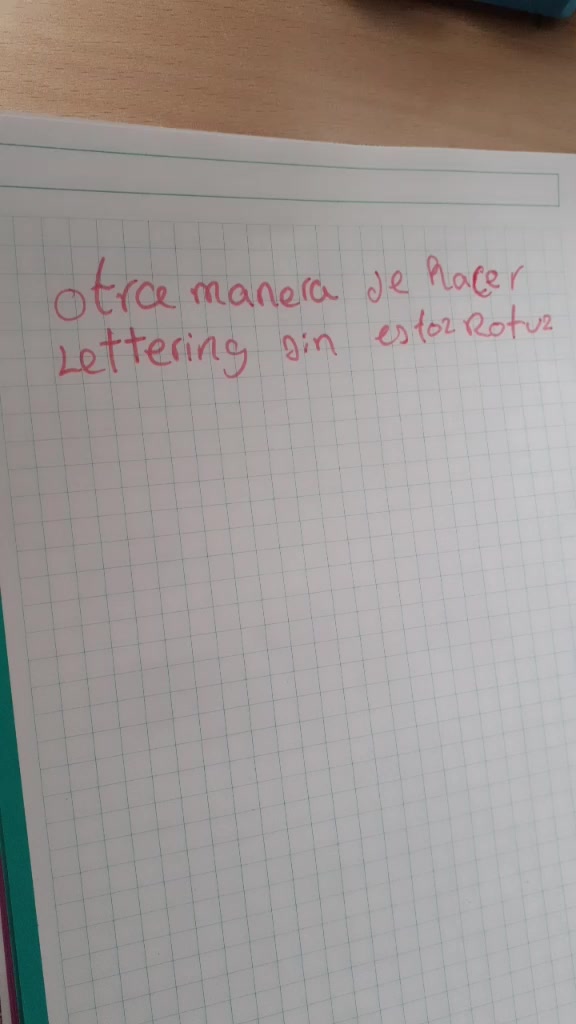 otra manera de hacer
Lettering sin estoz Rotuz